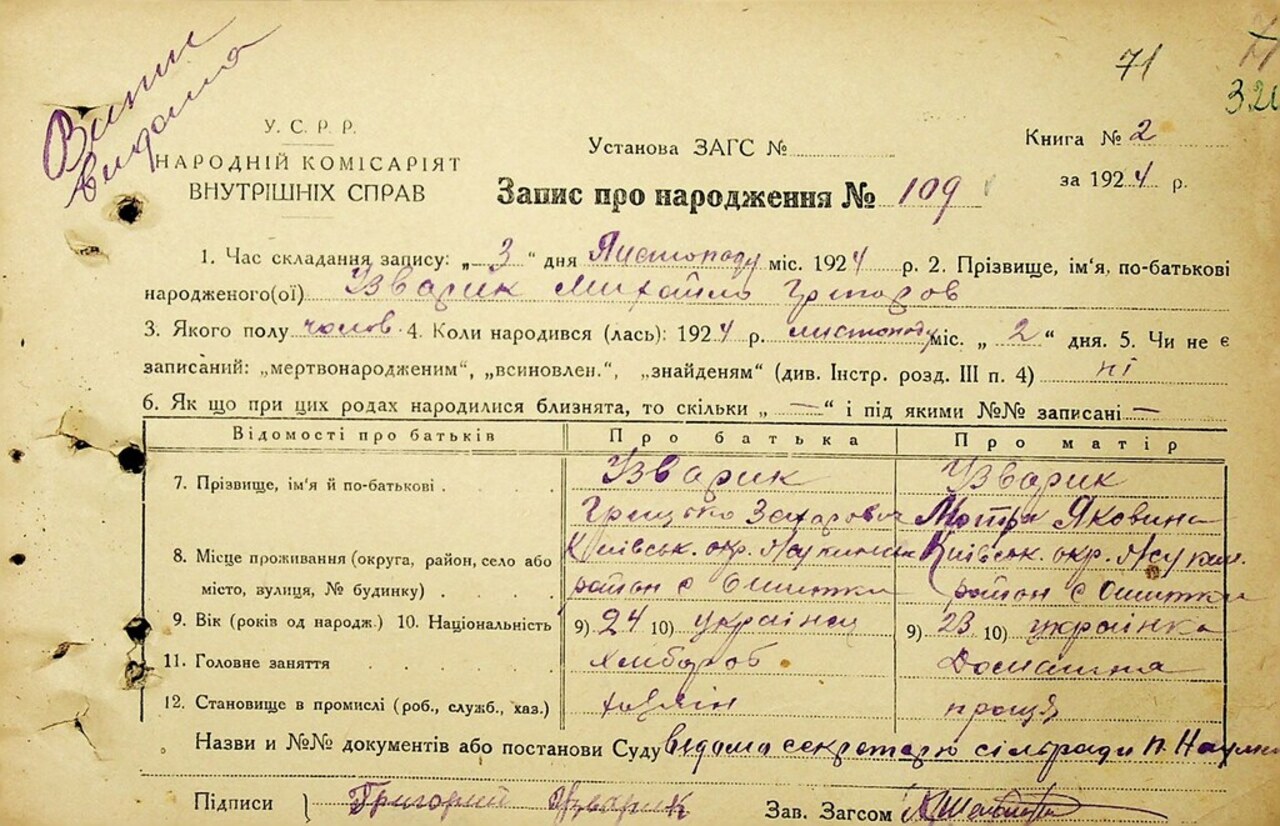 71
32
Витяг
видано
У. С. Р. Р.
НАРОДНІЙ КОМІСАРІЯТ
ВНУТРІШНІХ СПРАВ
Установа ЗАГС №
Книга № 2
за 1924 р.
Запис про народження № 109
1. Час складання запису: „ 3 “ дня Листопаду міс. 1924 р. 2. Прізвище, ім'я, по-батькові
народженого(ої) Узварик Михайло Григоров
3. Якого полу чолов. 4. Коли народився (лась): 1924 р. листопаду міс. „ 2 “ дня. 5. Чи не є
записаний: „мертвонародженим“, „всиновлен.“, „знайденям“ (див. Інстр. розд. III п. 4) ні
6. Як що при цих родах народилися близнята, то скільки „ — “ і під якими №№ записані —
Відомості про батьків Про батька Про матір
7. Прізвище, ім'я й по-батькові . Узварик Узварик
Грицько Захарович Мотря Яковина
8. Місце проживання (округа, район, село або Київськ. окр. Київськ. окр.
місто, вулиця, № будинку) . район с Ошитки район с Ошитки
9. Вік (років од народж.) 10. Національність 9) 24 10) українец 9) 23 10) українка
11. Головне заняття . . . . Хлібороб Домашня
12. Становище в промислі (роб., служб., хаз.) хазяін праця
Назви и №№ документів або постанови Суду Ведома секретарю сільради п.
Підписи } Григорий Узварик Зав. Загсом